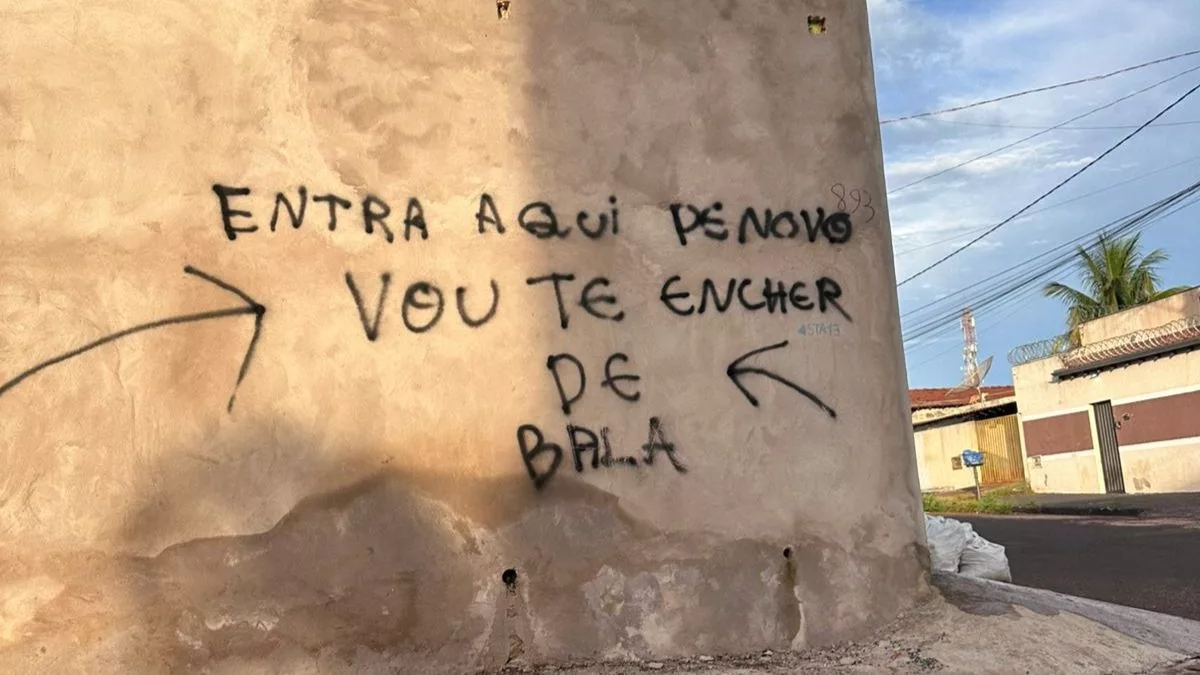 ENTRA AQUI DE NOVO
893
VOU TE ENCHER
DE
BALA